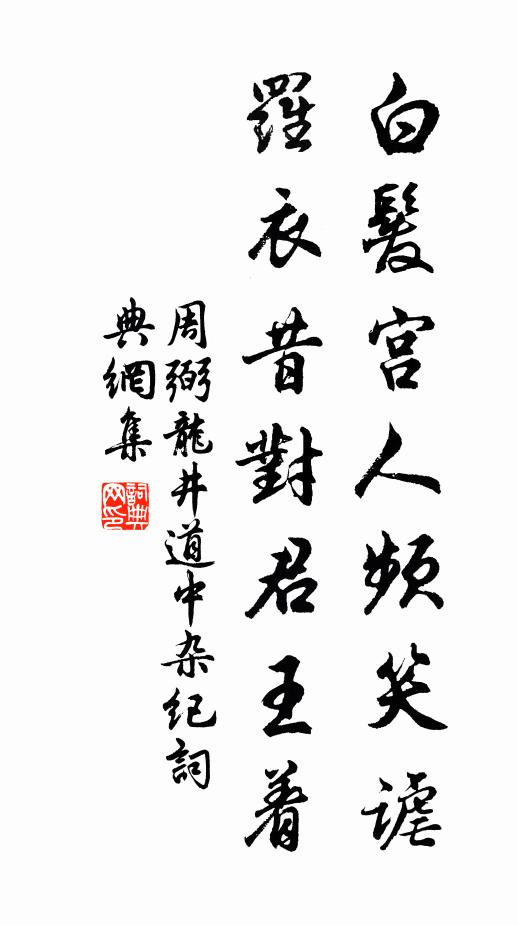 白髮宮人頻笑謔
羅衣昔對君王着
周弼龍井道中杂纪詞
典網集
詞典网印